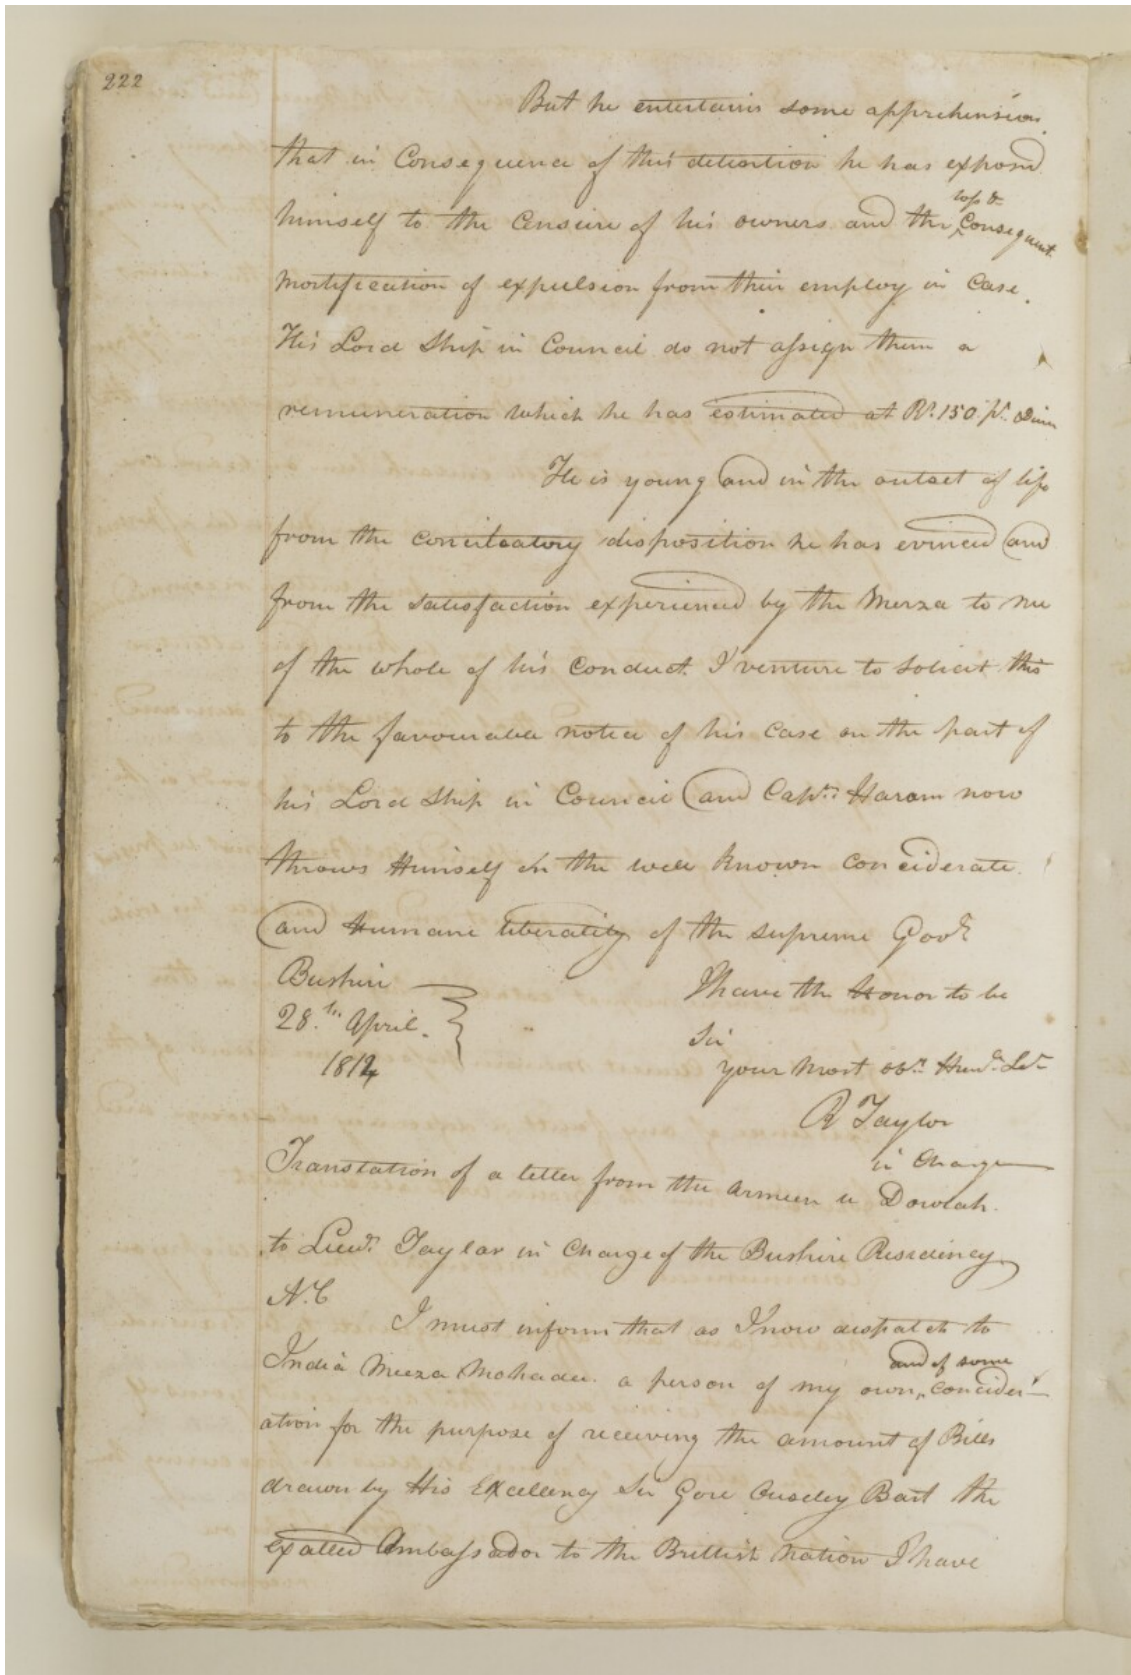 222
But he entertains some apprehension
that in Consequence of this detention he has exposed
himself to the Censure of his owners and the loss & Consequent
Mortification of expulsion from their employ in Case
His Lord Ship in Council do not assign them a
remuneration which he has estimated at Rs. 150 pr. Diem
He is young and in the outset of life
from the conciliatory disposition he has evinced and
from the satisfaction experienced by the Merza to me
of the whole of his Conduct. I venture to Solicit this
to the favourable notice of his Case on the part of
his Lord Ship in Council and Captn. Haram now
throws Himself on the well known conciderate
and Humane liberality of the supreme Govt.
Bushire
28.th April.
1812
I have the Honor to be
Sir
your Most obt. Humb. Svt
R Taylor
in Charge
Translation of a letter from the Armeen u Dowlah.
to Lieut. Taylor in Charge of the Bushire Residency
A.C
I must inform that as I now dispatch to
India Meeza Mohadee. a person of my own, and of some concider-
ation for the purpose of receiving the amount of Bills
drawn by His Excellency Sir Gore Ouseley Bart the
exalted Ambassador to the Brittish Nation I have